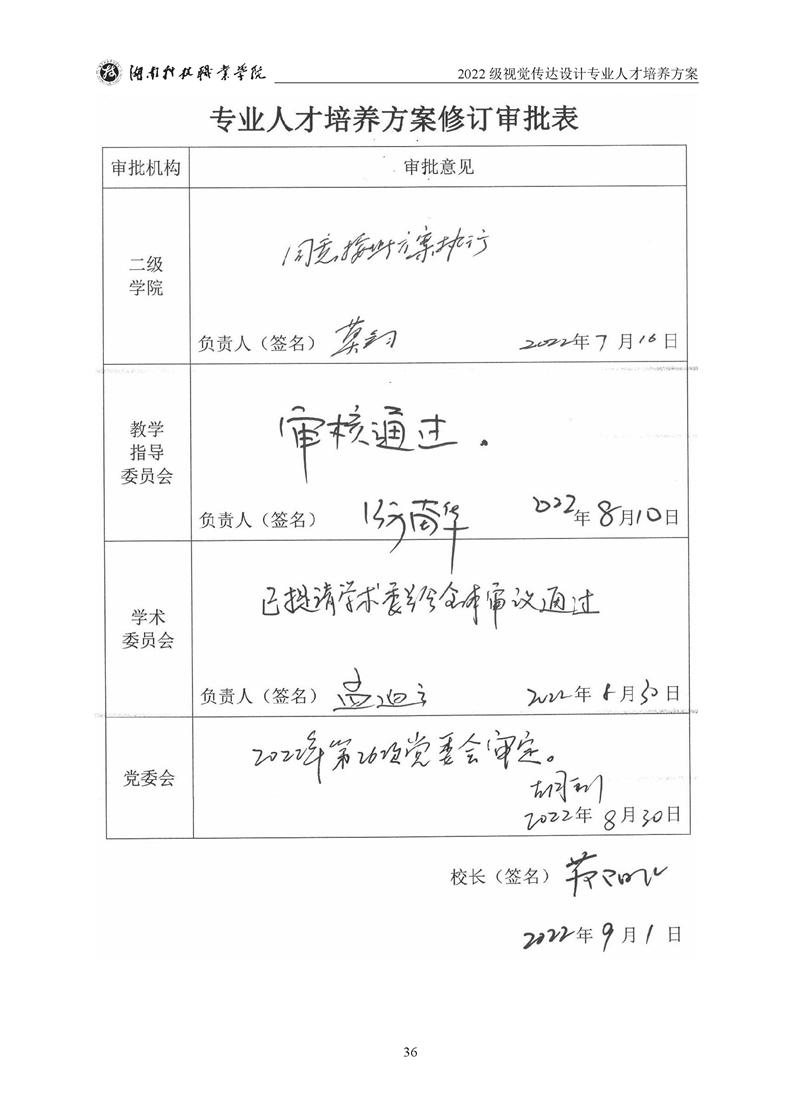 湖南科技职业学院 2022 级视觉传达设计专业人才培养方案
专业人才培养方案修订审批表
审批机构 审批意见
二级
学院
同意按此方案执行
负责人（签名） 2022年7月16日
教学
指导
委员会
审核通过。
负责人（签名） 2022年8月10日
学术
委员会
已提请学术委员会全体审议通过
负责人（签名） 2022年8月30日
党委会
2022年第26次党委会审定。
2022年8月30日
校长（签名）
2022年9月1日
36